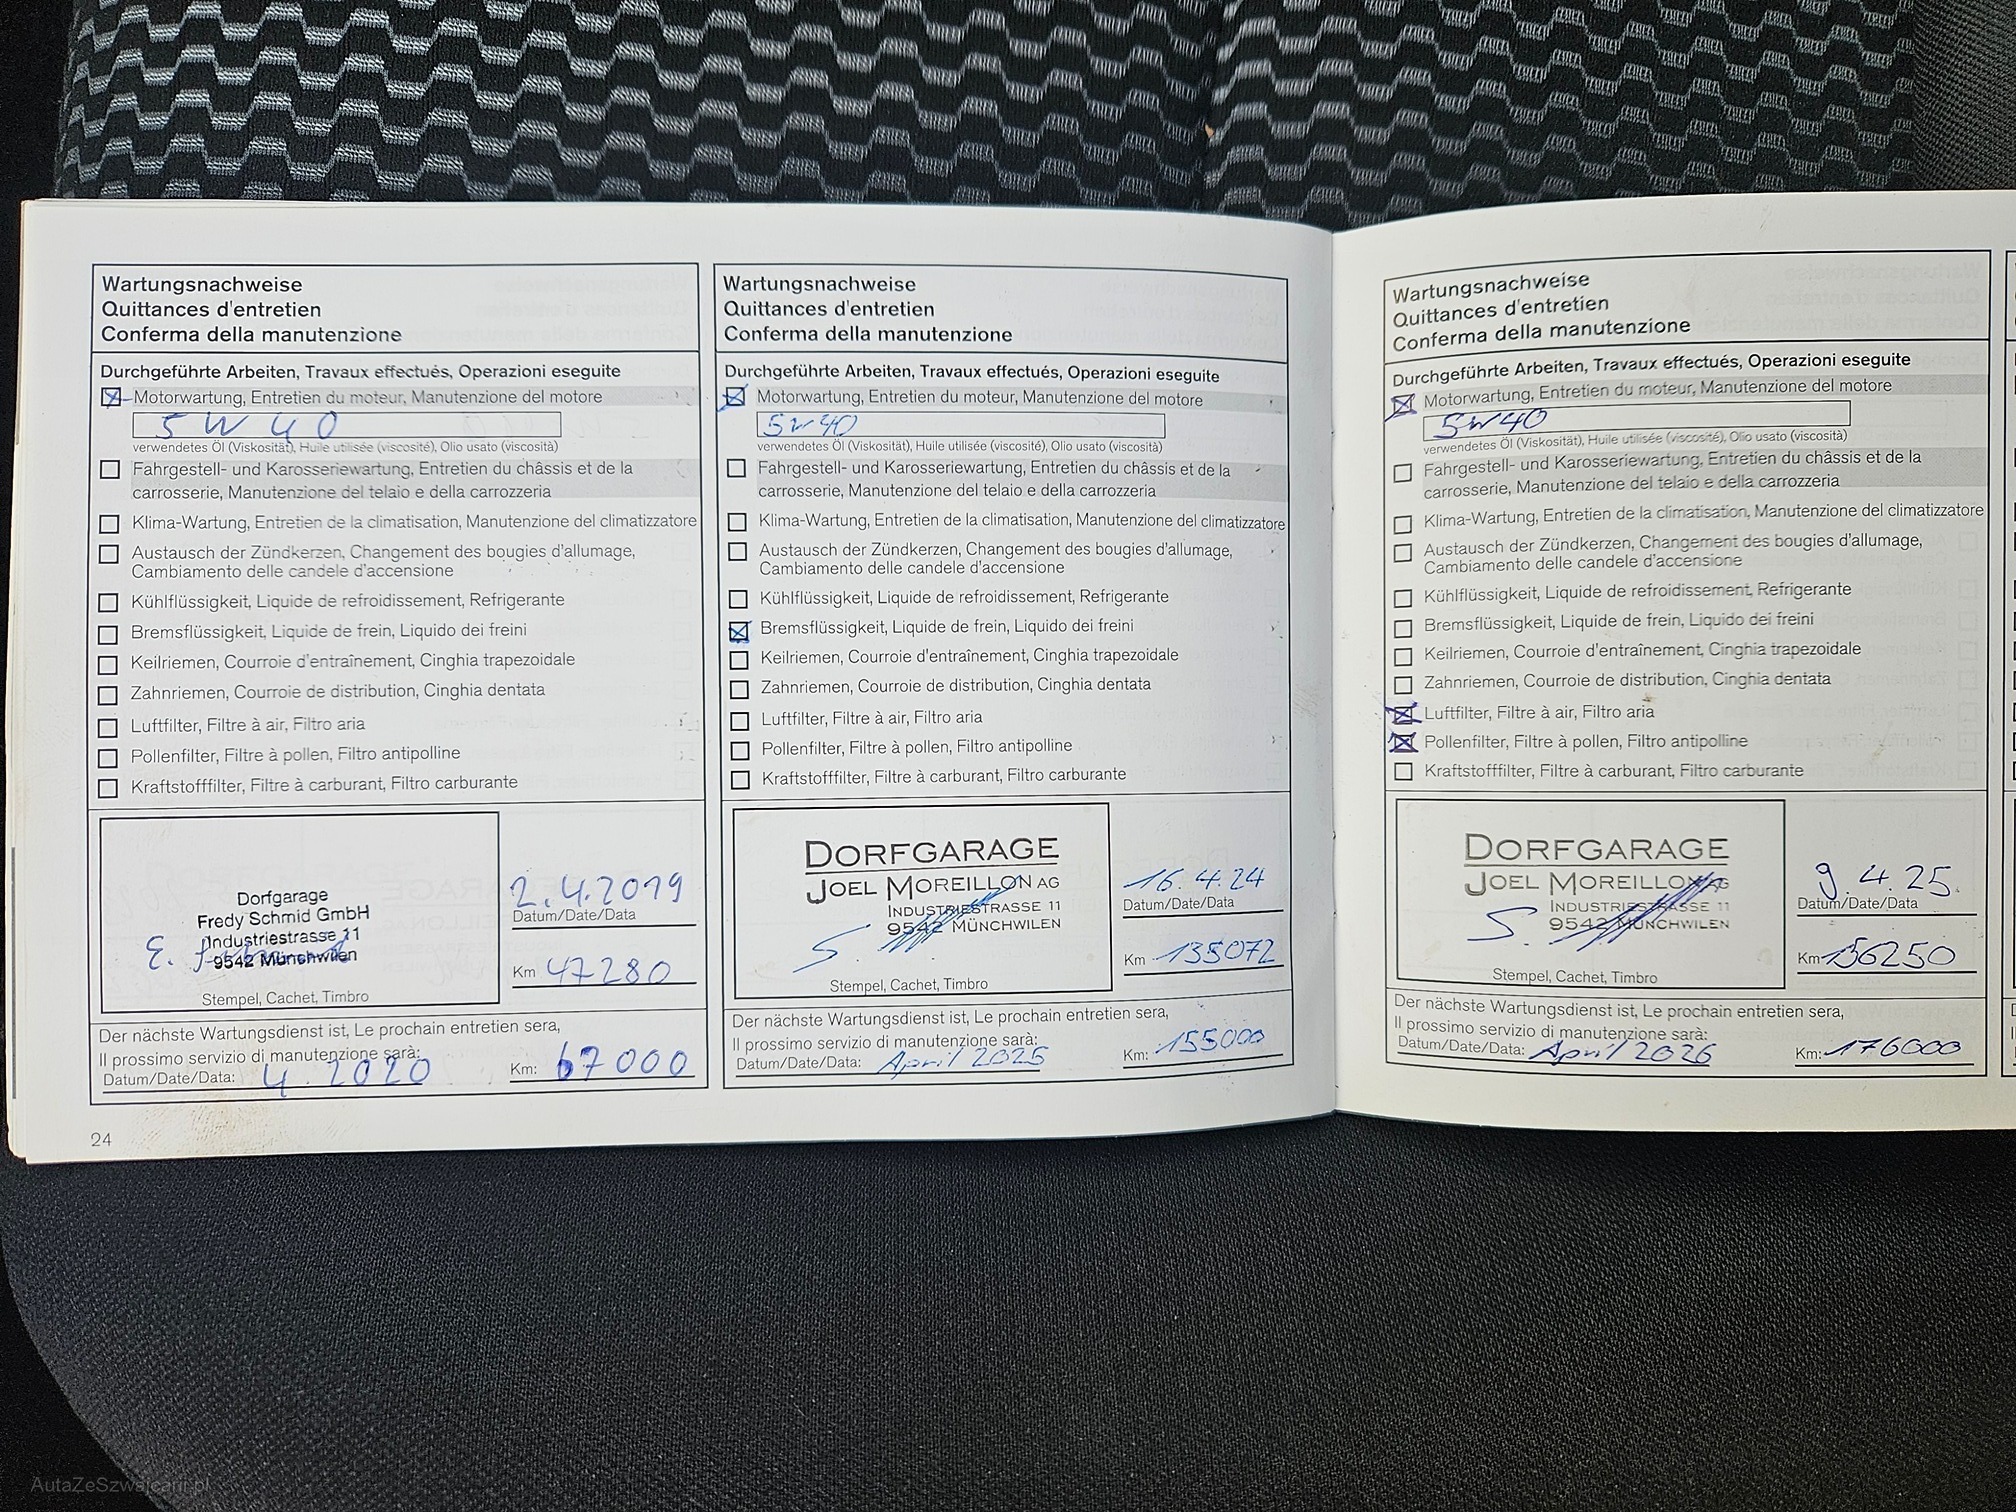 Wartungsnachweise
Quittances d'entretien
Conferma della manutenzione
Durchgeführte Arbeiten, Travaux effectués, Operazioni eseguite
Motorwartung, Entretien du moteur, Manutenzione del motore
5W40
verwendetes Öl (Viskosität), Huile utilisée (viscosité), Olio usato (viscosità)
Fahrgestell- und Karosseriewartung, Entretien du châssis et de la
carrosserie, Manutenzione del telaio e della carrozzeria
Klima-Wartung, Entretien de la climatisation, Manutenzione del climatizzatore
Austausch der Zündkerzen, Changement des bougies d'allumage,
Cambiamento delle candele d'accensione
Kühlflüssigkeit, Liquide de refroidissement, Refrigerante
Bremsflüssigkeit, Liquide de frein, Liquido dei freini
Keilriemen, Courroie d'entraînement, Cinghia trapezoidale
Zahnriemen, Courroie de distribution, Cinghia dentata
Luftfilter, Filtre à air, Filtro aria
Pollenfilter, Filtre à pollen, Filtro antipolline
Kraftstofffilter, Filtre à carburant, Filtro carburante
Dorfgarage
Fredy Schmid GmbH
Industriestrasse 11
9542 Münchwilen
Stempel, Cachet, Timbro
2.4.2019
Datum/Date/Data
Km 47280
Der nächste Wartungsdienst ist, Le prochain entretien sera,
Il prossimo servizio di manutenzione sarà:
Datum/Date/Data: 4.2020 Km: 67000
24
Wartungsnachweise
Quittances d'entretien
Conferma della manutenzione
Durchgeführte Arbeiten, Travaux effectués, Operazioni eseguite
Motorwartung, Entretien du moteur, Manutenzione del motore
5W40
verwendetes Öl (Viskosität), Huile utilisée (viscosité), Olio usato (viscosità)
Fahrgestell- und Karosseriewartung, Entretien du châssis et de la
carrosserie, Manutenzione del telaio e della carrozzeria
Klima-Wartung, Entretien de la climatisation, Manutenzione del climatizzatore
Austausch der Zündkerzen, Changement des bougies d'allumage,
Cambiamento delle candele d'accensione
Kühlflüssigkeit, Liquide de refroidissement, Refrigerante
Bremsflüssigkeit, Liquide de frein, Liquido dei freini
Keilriemen, Courroie d'entraînement, Cinghia trapezoidale
Zahnriemen, Courroie de distribution, Cinghia dentata
Luftfilter, Filtre à air, Filtro aria
Pollenfilter, Filtre à pollen, Filtro antipolline
Kraftstofffilter, Filtre à carburant, Filtro carburante
DORFGARAGE
JOEL MOREILLON AG
INDUSTRIESTRASSE 11
9542 MÜNCHWILEN
Stempel, Cachet, Timbro
16.4.24
Datum/Date/Data
Km 135072
Der nächste Wartungsdienst ist, Le prochain entretien sera,
Il prossimo servizio di manutenzione sarà:
Datum/Date/Data: April 2025 Km: 155000
Wartungsnachweise
Quittances d'entretien
Conferma della manutenzione
Durchgeführte Arbeiten, Travaux effectués, Operazioni eseguite
Motorwartung, Entretien du moteur, Manutenzione del motore
5W40
verwendetes Öl (Viskosität), Huile utilisée (viscosité), Olio usato (viscosità)
Fahrgestell- und Karosseriewartung, Entretien du châssis et de la
carrosserie, Manutenzione del telaio e della carrozzeria
Klima-Wartung, Entretien de la climatisation, Manutenzione del climatizzatore
Austausch der Zündkerzen, Changement des bougies d'allumage,
Cambiamento delle candele d'accensione
Kühlflüssigkeit, Liquide de refroidissement, Refrigerante
Bremsflüssigkeit, Liquide de frein, Liquido dei freini
Keilriemen, Courroie d'entraînement, Cinghia trapezoidale
Zahnriemen, Courroie de distribution, Cinghia dentata
Luftfilter, Filtre à air, Filtro aria
Pollenfilter, Filtre à pollen, Filtro antipolline
Kraftstofffilter, Filtre à carburant, Filtro carburante
DORFGARAGE
JOEL MOREILLON AG
INDUSTRIESTRASSE 11
9542 MÜNCHWILEN
Stempel, Cachet, Timbro
9.4.25.
Datum/Date/Data
Km 156250
Der nächste Wartungsdienst ist, Le prochain entretien sera,
Il prossimo servizio di manutenzione sarà:
Datum/Date/Data: April 2026 Km: 176000
AutaZeSzwajcarii.pl